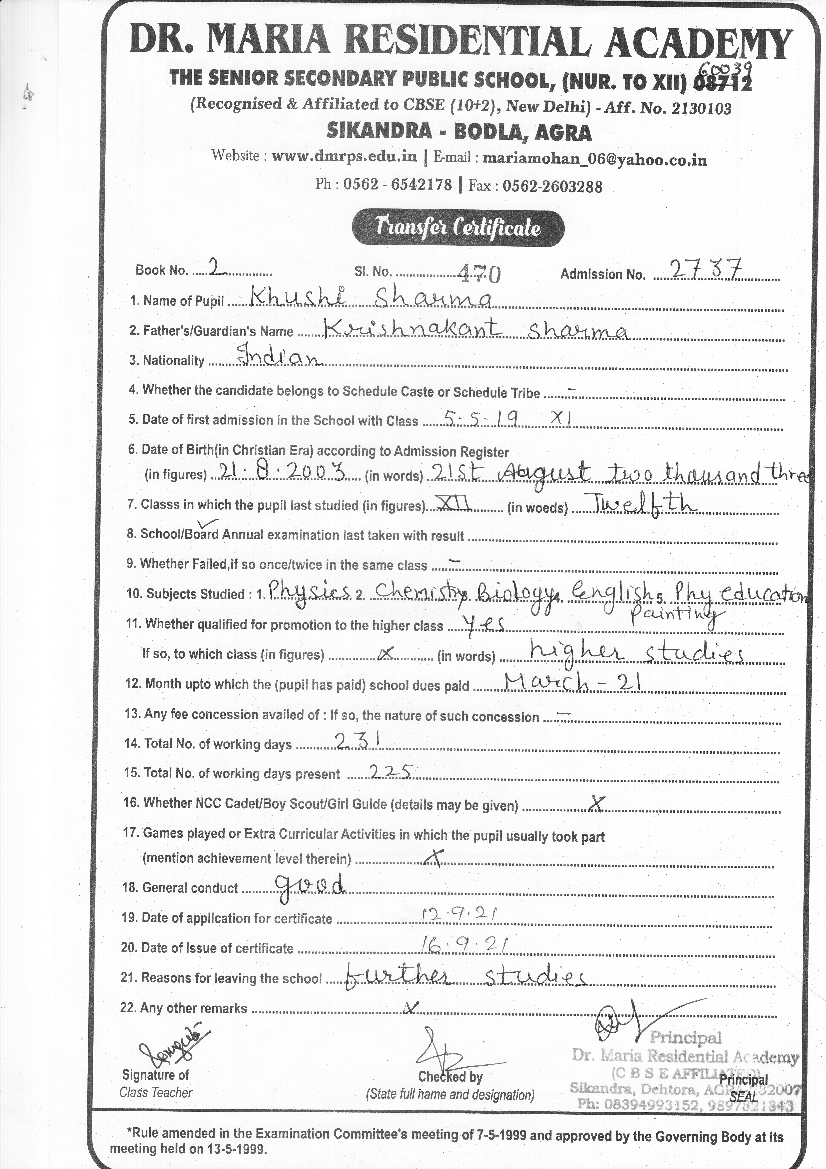 DR. MARIA RESIDENTIAL ACADEMY
60039
THE SENIOR SECONDARY PUBLIC SCHOOL, (NUR. TO XII) 08712
(Recognised & Affiliated to CBSE (10+2), New Delhi) - Aff. No. 2130103
SIKANDRA - BODLA, AGRA
Website : www.dmrps.edu.in | E-mail : mariamohan_06@yahoo.co.in
Ph : 0562 - 6542178 | Fax : 0562-2603288
Transfer Certificate
Book No. .....2............. Sl. No. ..................470 Admission No. ....2737..........
1. Name of Pupil .....Khushi Sharma
2. Father's/Guardian's Name ......Krishnakant Sharma
3. Nationality .......Indian
4. Whether the candidate belongs to Schedule Caste or Schedule Tribe .....-
5. Date of first admission in the School with Class .....5-5-19 XI
6. Date of Birth(in Christian Era) according to Admission Register
(in figures) ..21.8.2003.... (in words) ..21st August two thousand three
7. Classs in which the pupil last studied (in figures)...XII.......... (in woeds) .....Twelfth
8. School/Board Annual examination last taken with result ...........
9. Whether Failed,if so once/twice in the same class .....-
10. Subjects Studied : 1. Physics 2. Chemistry 3. Biology 4. English 5. Phy education
painting
11. Whether qualified for promotion to the higher class ...yes
If so, to which class (in figures) ..........x.......... (in words) ....higher studies
12. Month upto which the (pupil has paid) school dues paid ........March - 21
13. Any fee concession availed of : If so, the nature of such concession .....-
14. Total No. of working days ..........231
15. Total No. of working days present .....225
16. Whether NCC Cadet/Boy Scout/Girl Guide (details may be given) ..................x
17. Games played or Extra Curricular Activities in which the pupil usually took part
(mention achievement level therein) ...................x
18. General conduct .........good
19. Date of application for certificate ....................12.9.21
20. Date of Issue of certificate ....................16.9.21
21. Reasons for leaving the school .....further studies
22. Any other remarks ....................x
Principal
Dr. Maria Residential Academy
(C B S E AFFILIATED)
Signature of Checked by Principal
Sikandra, Dehtora, AGRA 282007
Class Teacher (State full hame and designation) SEAL
Ph: 08394993152,
*Rule amended in the Examination Committee's meeting of 7-5-1999 and approved by the Governing Body at its
meeting held on 13-5-1999.